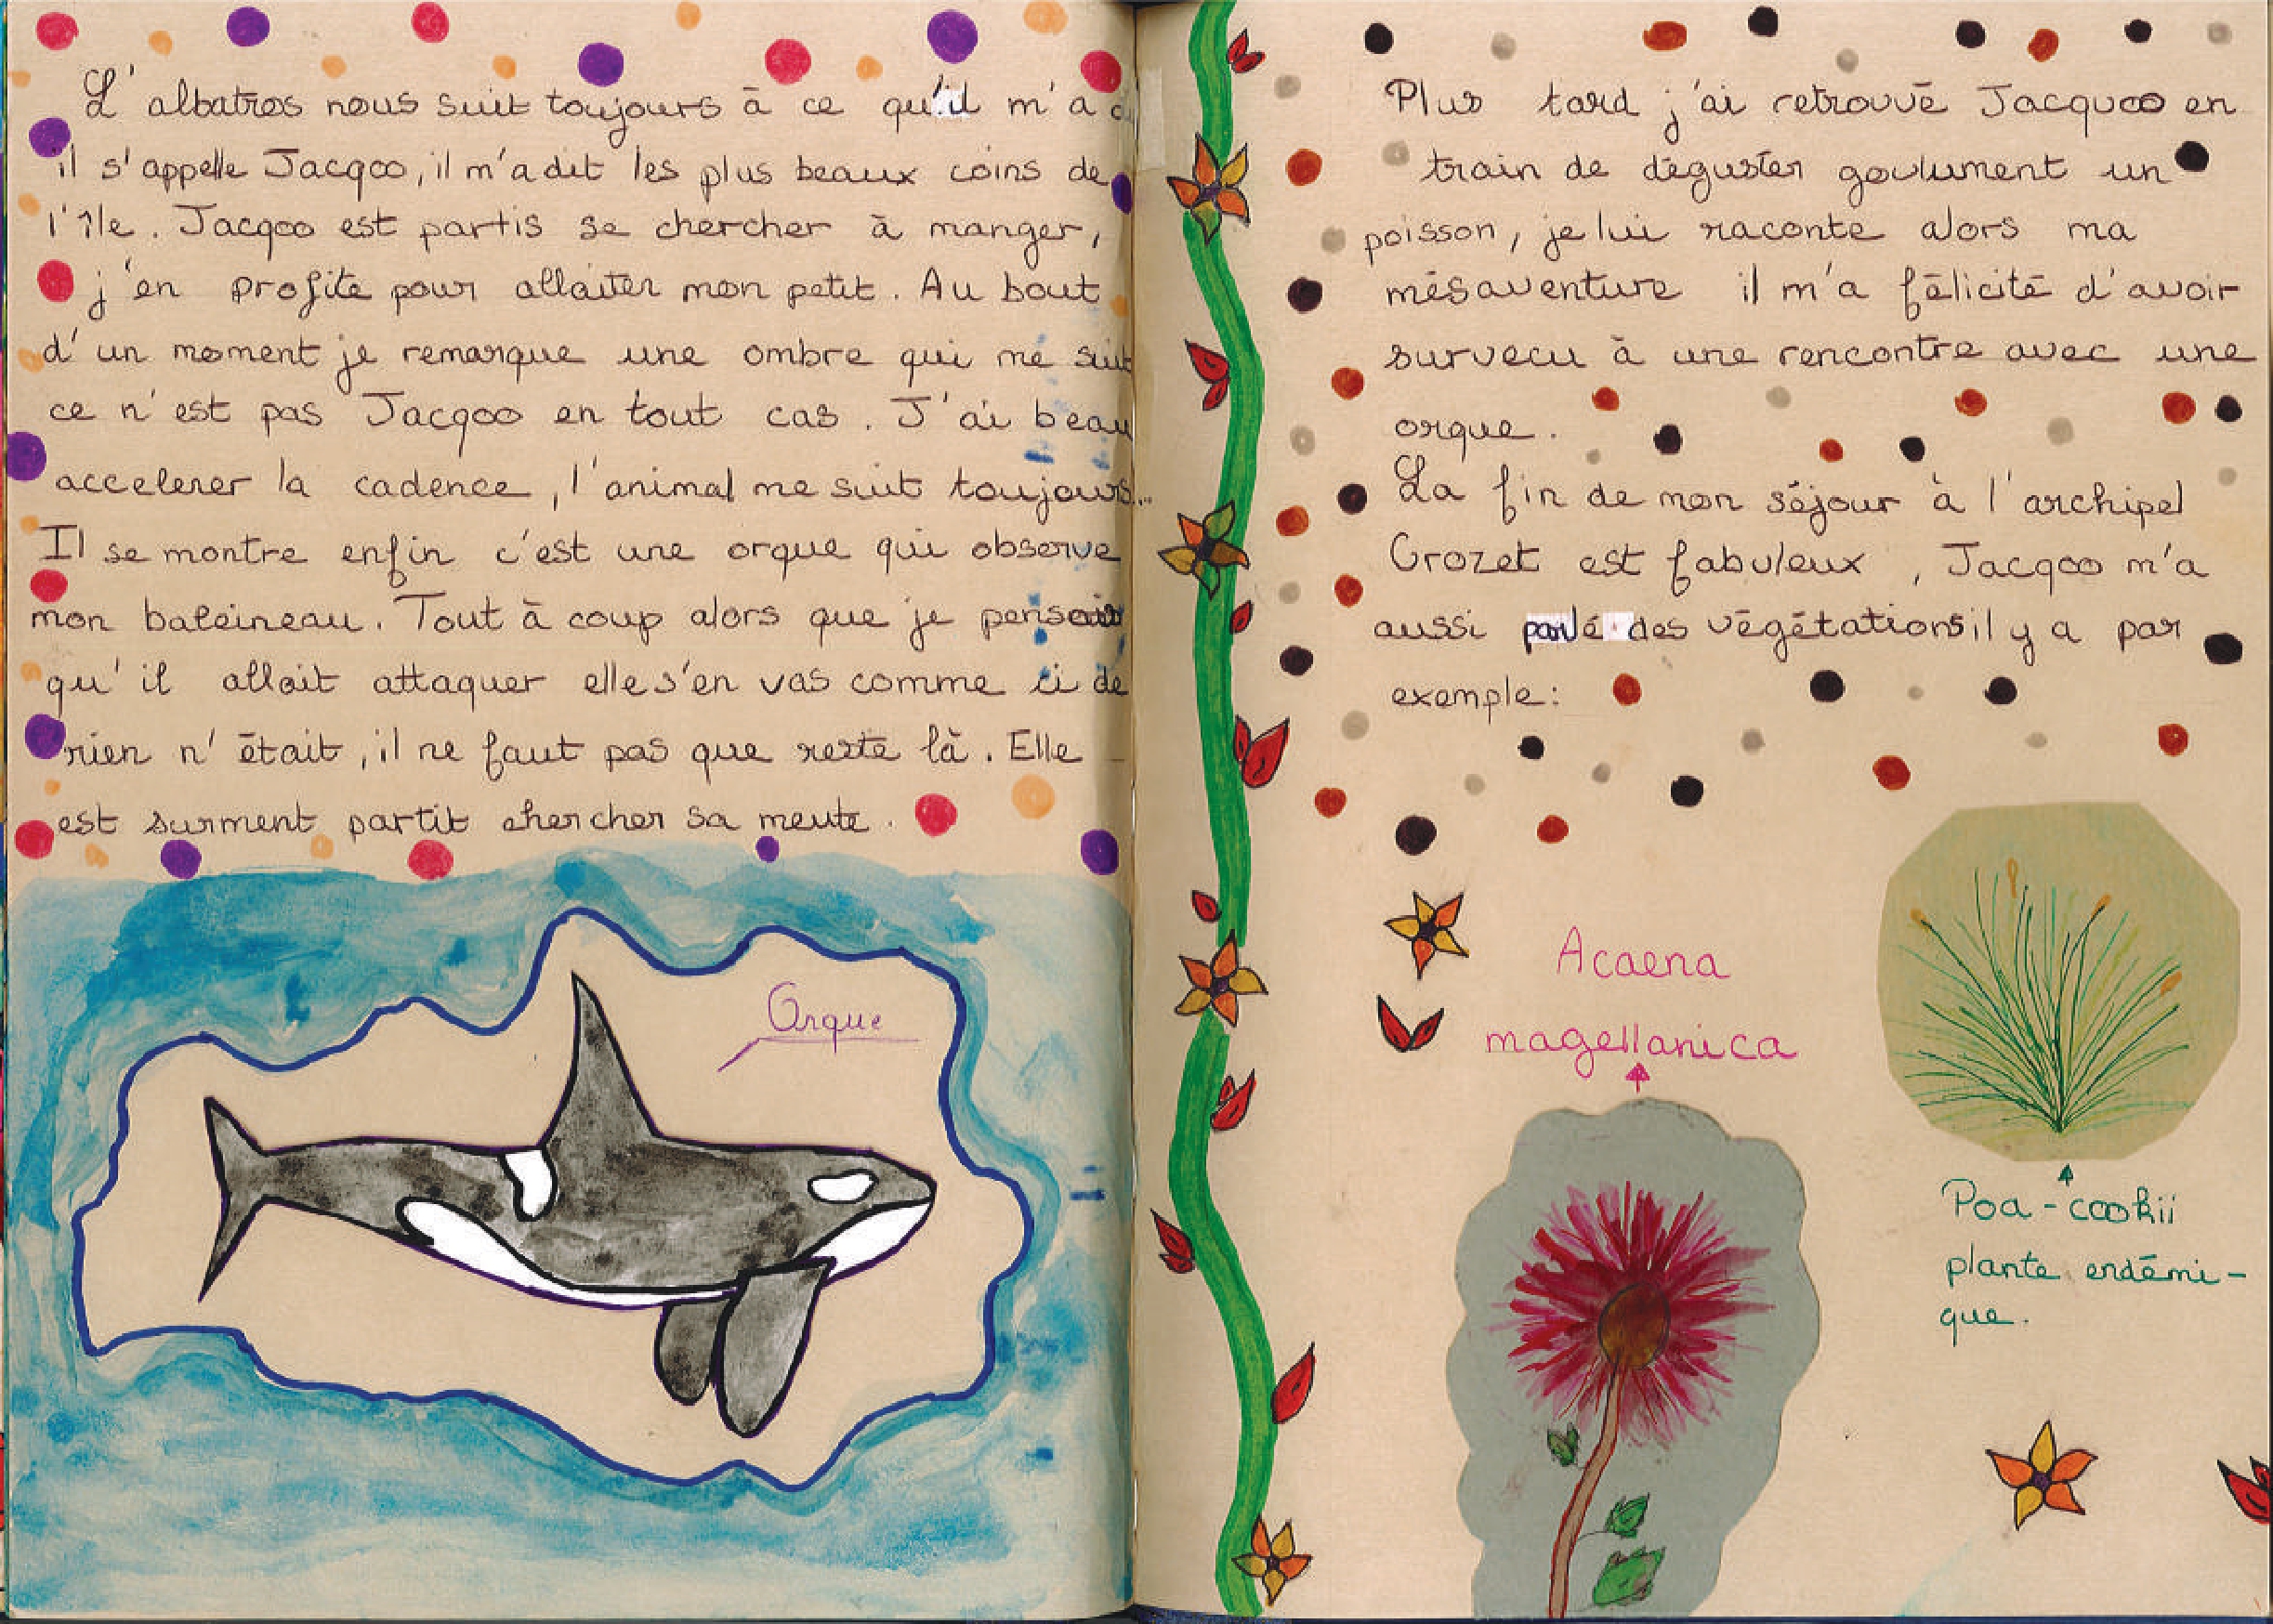 L'albatros nous suit toujours à ce qu'il m'a
il s'appelle Jacqoo, il m'a dit les plus beaux coins de
l'île. Jacqoo est partis se chercher à manger,
j'en profite pour allaiter mon petit. Au bout
d'un moment je remarque une ombre qui me suit
ce n'est pas Jacqoo en tout cas. J'ai beau
accelerer la cadence, l'animal me suit toujours...
Il se montre enfin c'est une orque qui observe
mon baleineau. Tout à coup alors que je pensait
qu'il allait attaquer elle s'en vas comme ci de
rien n'était, il ne faut pas que reste là. Elle
est surment partit chercher sa meute.
Orque
Plus tard j'ai retrouvé Jacquoo en
train de déguster goulument un
poisson, je lui raconte alors ma
mésaventure il m'a félicité d'avoir
survecu à une rencontre avec une
orque.
La fin de mon séjour à l'archipel
Crozet est fabuleux, Jacqoo m'a
aussi parlé des végétations il y a par
exemple:
Acaena
magellanica
Poa-cookii
plante endémi-
que.